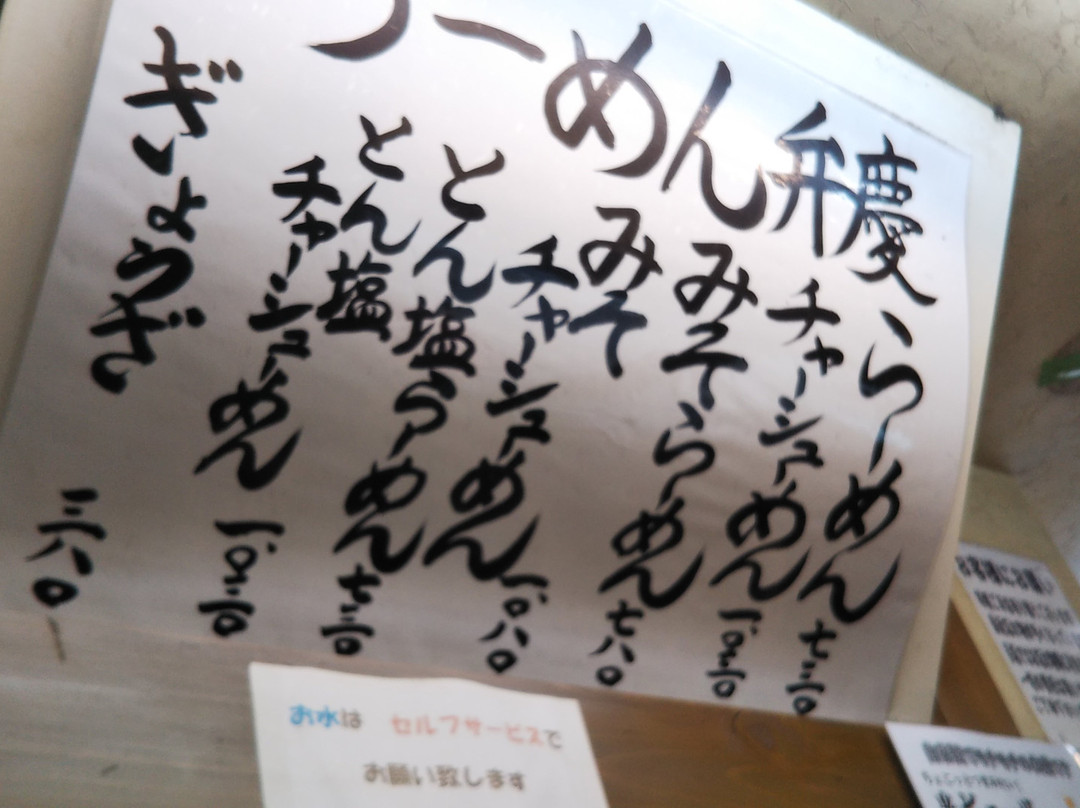 らーめん弁慶
らーめん 七三〇
チャーシューめん 一〇三〇
みそらーめん 七八〇
みそチャーシューめん 一〇八〇
とん塩らーめん 七三〇
とん塩チャーシューめん 一〇三〇
ぎょうざ 三八〇
お水は セルフサービスで
お願い致します